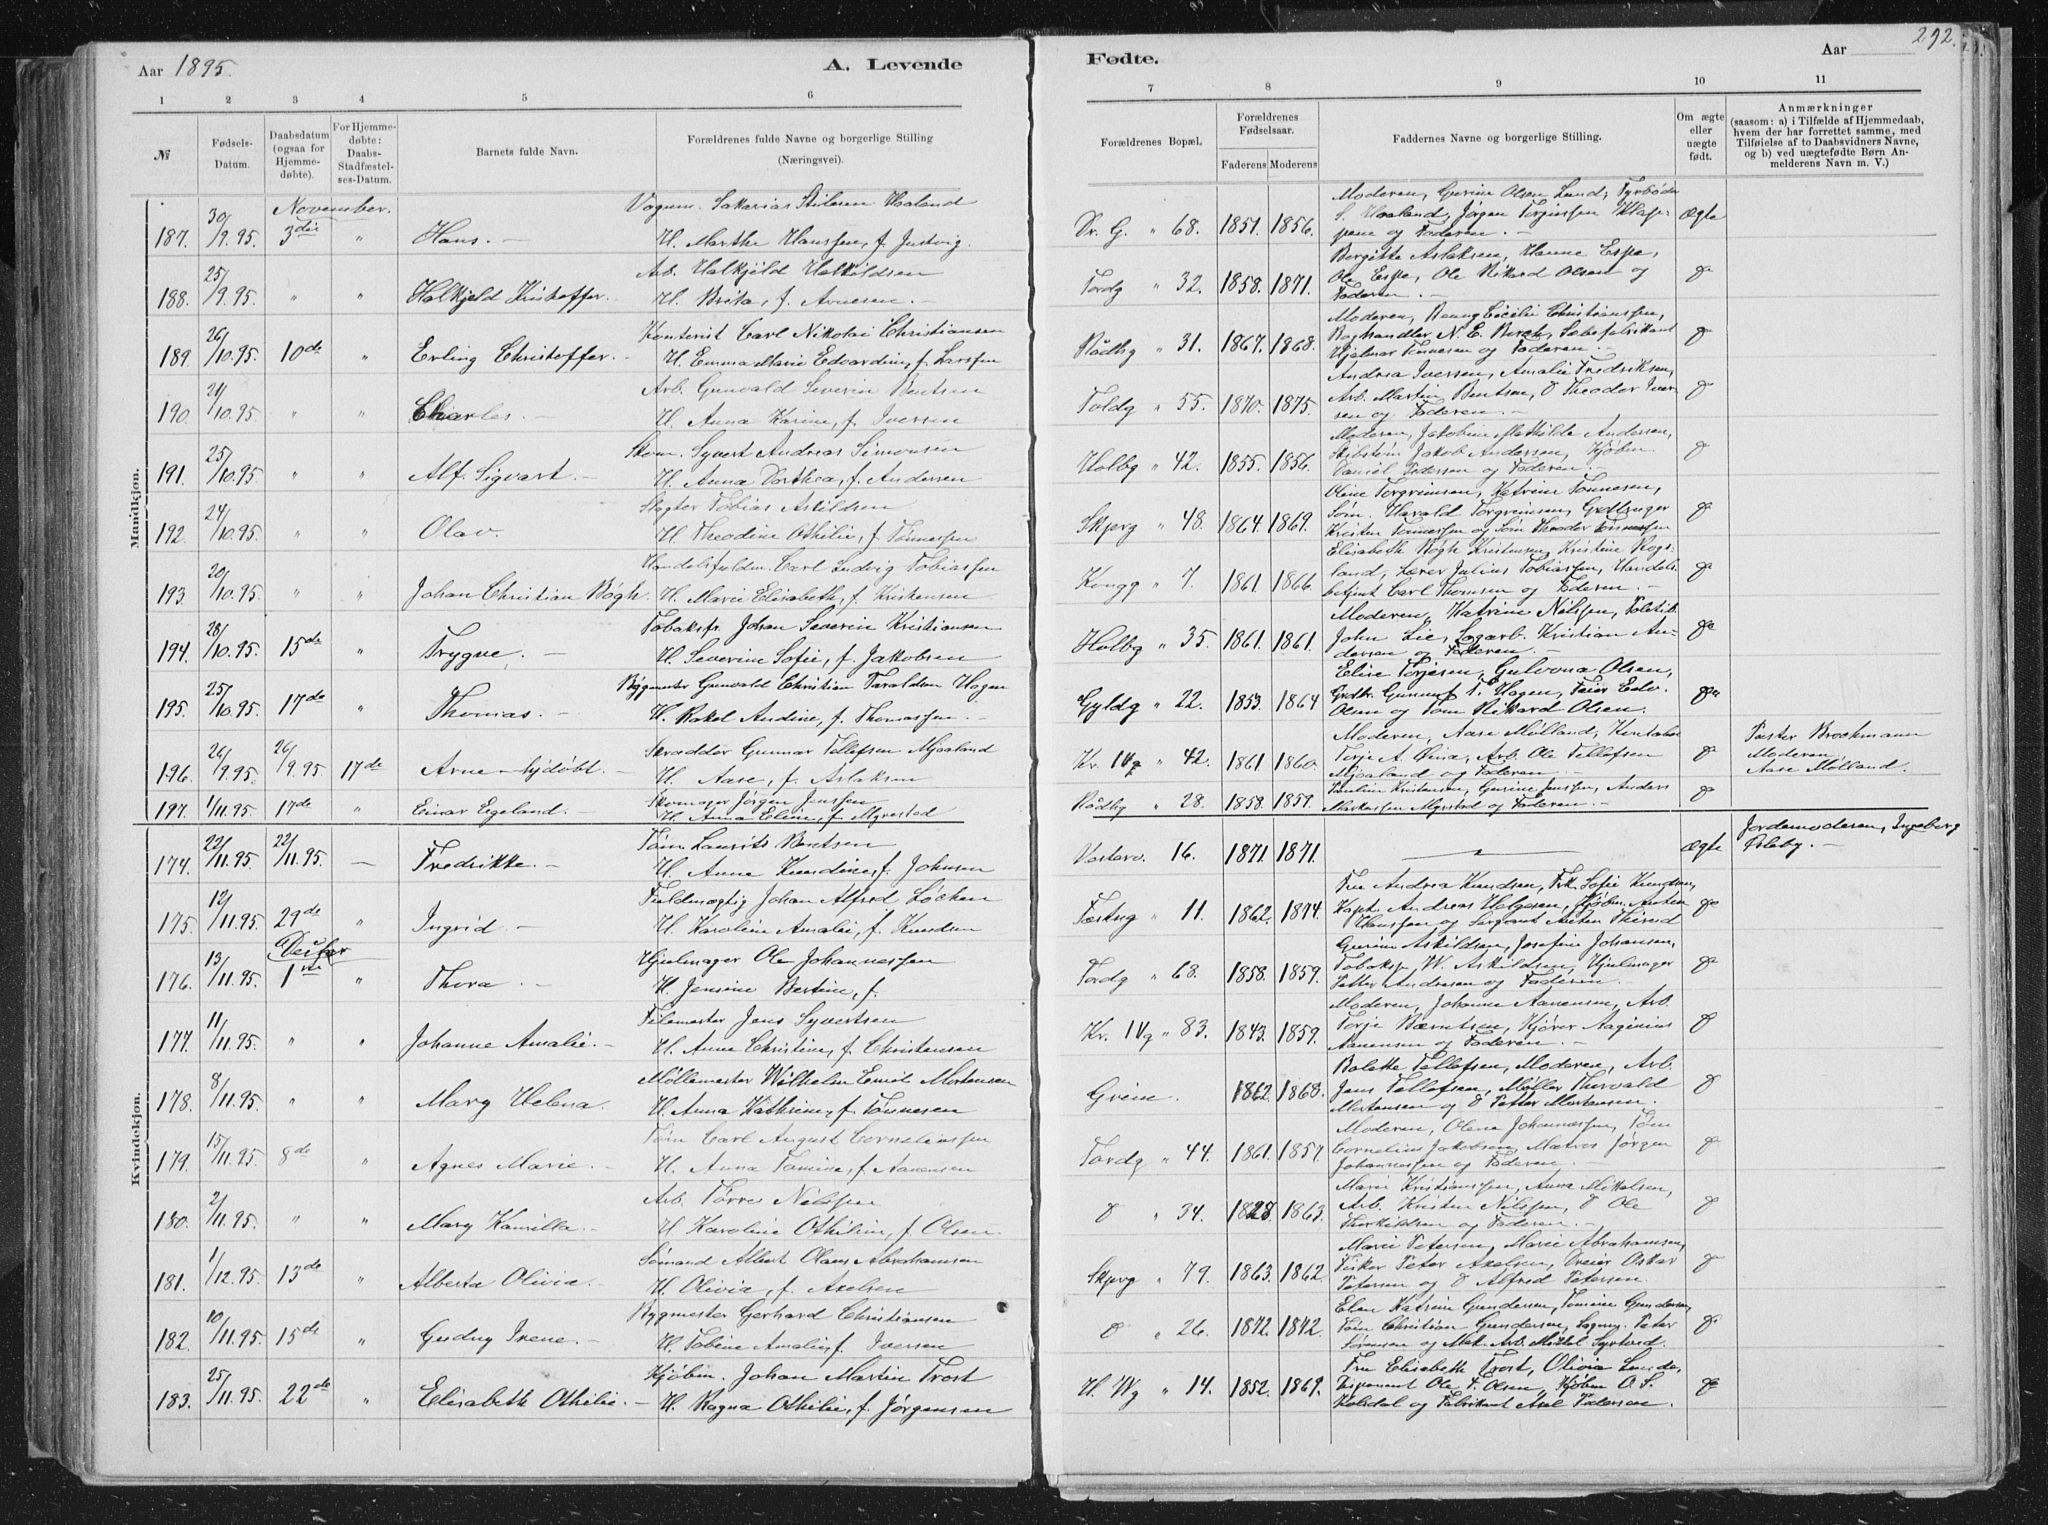 Aar 1895.
A. Levende
Fødte.
Aar
292.
1 2 3 4 5 6
7 8 9 10 11
№
Fødsels-
Datum.
Daabsdatum
(ogsaa for
Hjemme-
døbte).
For Hjemme-
døbte:
Daabs-
Stadfæstel-
ses-Datum.
Barnets fulde Navn.
Forældrenes fulde Navne og borgerlige Stilling
(Næringsvei).
Forældrenes Bopæl.
Forældrenes
Fødselsaar.
Faderens Moderens
Faddernes Navne og borgerlige Stilling.
Om ægte
eller
uægte
født.
Anmærkninger
(saasom: a) i Tilfælde af Hjemmedaab,
hvem der har forrettet samme, med
Tilføielse af to Daabsvidners Navne,
og b) ved uægtefødte Børn An-
melderens Navn m. V.)
Mandkjøn.
November.
187. 30/9.95. 3die " Hans. —
Vognm. Sakarias Haaland
H. Marthe Hansen, f. Justvig.
Dr. G. " 68. 1851. 1856.
Moderen, Gurine Olsen Lund,
S. Haaland, Jørgen
og Faderen. —
Ægte
188. 25/9.95. " " Halkjeld Kristoffer. —
Arb. Halkjeld Halkildsen
H. Brita, f. Arnesen. —
Tordg " 32. 1858. 1871.
Bergitte Aslaksen, Hanne Espe,
Ole Espe, Ole Rikard Olsen og
Faderen. —
189. 26/10.95. 10de " Erling Christoffer. —
Kontorist Carl Nikolai Christiansen
H. Emma Marie Edvardine, f. Larssen
Rådhg " 31. 1867. 1868.
Moderen, Cecilie Christianssen,
Boghandler N. E. Birch, Sæbefabrikant
Hjalmar Tønnesen og Faderen. —
190. 21/10.95 " " Charles. —
Arb. Gunvald Severin Bentsen
H. Anna Karine, f. Iversen
Toldg " 55. 1870. 1875.
Andrea Iversen, Amalie Fredriksen,
Arb. Martin Bentsen, Theodor Iver-
sen og Faderen. —
191. 25/10.95. " " Alf Sigvart. —
Skom. Syvert Andreas Simonsen
H. Anna Dorthea, f. Andersen
Holbg " 42. 1855. 1856.
Moderen, Jakobine Mathilde Andersen,
Jakob Andersen, Kjøbm.
Daniel Pedersen og Faderen. —
192. 24/10.95. " " Olav. —
Slagter Tobias Askildsen
H. Theodine Othilie, f. Tønnessen
Skjerg " 48. 1864. 1869.
Oline Torgrimsen, Katrine Tønnesen,
Søm. Harald Torgrimsen,
Kristen Tønnessen og Søm. Theodor Tønnessen
193. 20/10.95. " " Johan Christian Bøgh.
Handelsfuldm. Carl Ludvig Tobiassen
H. Marie Elisabeth, f. Kristensen
Kongg " 7. 1861. 1866.
Elisabeth Bøgh Kristensen, Kristine Rogs-
land, Lærer Julius Tobiassen, Handels-
betjent Carl Thomsen og Faderen. —
194. 28/10.95. 15de " Trygve. —
Tobaksfr. Johan Severin Kristiansen
H. Severine Sofie, f. Jakobsen
Holbg " 35. 1861. 1861.
Moderen, Katrine Nilssen,
John Lie, Kristian An-
dersen og Faderen. —
195. 25/10.95. 17de " Thomas. —
Bygmester Gunvald Christian Taraldsen Hagen
H. Rakel Andine, f. Thomassen. —
Gyldg " 22. 1853. 1864
Elise Torjesen, Gulvona Olsen,
Gunnuf T. Hagen, Feier Edv.
Olsen og Søm. Rikard Olsen.
196. 26/9.95. 26/9.95 17de Arne — hjdøbt. —
Skrædder Gunnar Tellefsen Mjaaland
H. Aase, f. Aslaksen
Kr. IVg " 42. 1861. 1860.
Moderen, Aase Mølland,
Terje A. Arb. Ole Tellefsen
Mjaaland og Faderen. —
Pastor Brockmann
Moderen,
Aase Mølland.
197. 1/11.95. 17de " Einar Egeland. —
Skomager Jørgen Jenssen
H. Anna Eline, f. Myrestad
Rådhg " 28. 1858. 1859.
Kristensen, Gurine Jenssen, Anders
Markussen Myrstad og Faderen. —
Kvindekjøn.
174. 22/11.95. 22/11.95. — Fredrikke. —
Tøm. Laurits Bentsen
H. Anne Kundine, f. Johnsen
Vesterv. 16. 1871. 1871.
Ægte
Jordemoderen, Ingeborg
175. 12/11.95. 29de " Ingrid. —
Fuldmægtig Johan Alfred Løcken
H. Karoline Amalie, f. Knudsen
Festng " 11. 1862. 1874.
Fru Andrea Knudsen, Frk. Sofie Knudsen,
Kapt. Andreas Helgesen, Kjøbm. Anton
Hanssen og Sergeant Anton
Decbr
176. 13/11.95. 1ste " Thora. —
Hjulmager Ole Johannessen
H. Jensine Bertine, f.
Tordg " 68. 1858. 1859.
Gurine Askildsen, Josefine Johansen,
Tobaksp. W. Askildsen, Hjulmager
Petter Andresen og Faderen. —
177. 11/11.95. " " Johanne Amalie. —
Filemester Jens Syvertsen
H. Anne Christine, f. Christensen
Kr. IVg " 83. 1843. 1859.
Moderen, Johanne Aanensen, Arb.
Terje Berntsen, Aagerius
Aanensen og Faderen. —
178. 8/11.95. " " Mary Helena.
Møllemester Wilhelm Emil Mortensen
H. Anna Kathrine, f. Tønnesen
Greim. 1862. 1868.
Bolette Tellefsen, Moderen, Arb.
Jens Tellefsen, Møller Thorvald
Mortensen og Petter Mortensen.
179. 15/11.95 8de " Agnes Marie. —
Tøm. Carl August Corneliussen
H. Anna Tomine, f. Aanensen
Tordg " 44. 1861. 1857.
Moderen, Olena Johannessen, Tøm.
Cornelius Jakobsen, Matros Jørgen
Johannessen og Faderen. —
180. 2/11.95. " " Mary Kamilla. —
Arb. Tørre Nilssen
H. Karoline Othilie, f. Olsen.
" 34. 1828. 1863.
Marie Kristianssen, Anna Mikalsen,
Arb. Kristen Nilssen, Ole
Thorkildsen og Faderen. —
181. 1/12.95. 13de " Alberta Olivia. —
Sømand Albert Olaus Abrahamsen
H. Olivia, f. Axelsen
Skjerg " 79. 1863. 1862.
Marie Petersen, Marie Abrahamsen,
Fisker Peter Axelsen, Dreier Oskar
Petersen og Alfred Petersen.
182. 10/11.95. 15de " Gudny Irene. —
Bygmester Gerhard Christiansen
H. Tobine Amalie, f. Iversen
" 26. 1872. 1842.
Elen Katrine Gundersen, Tomine Gundersen,
Tøm. Christian Gundersen, Peter
Sørensen og
183. 25/11.95. 22de " Elisabeth Othilie. —
Kjøbm. Johan Martin Trost
H. Ragna Othilie, f. Jørgensen
H. Wg " 14. 1852. 1869.
Fru Elisabeth Trost, Olivia Lunde,
Disponent Ole T. Olsen, Kjøbm. O. S.
Kolsdal og Fabrikant Axel Pedersen.